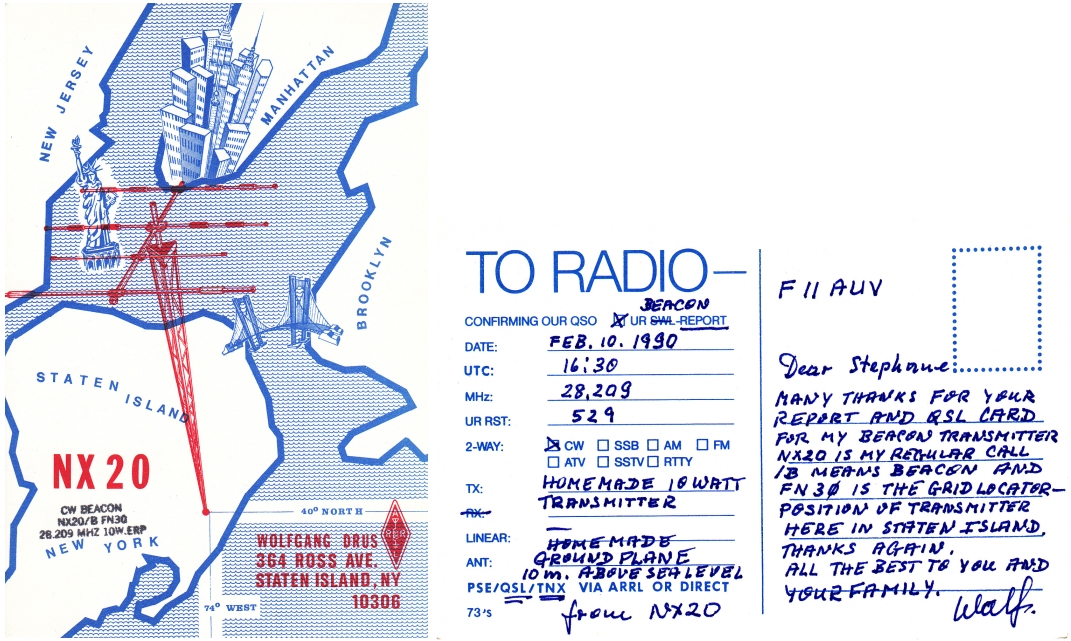 NEW JERSEY
MANHATTAN
BROOKLYN
STATEN
ISLAND
NX20
CW BEACON
NX2O/B FN30
28.209 MHZ 10W.ERP
NEW YORK
40° NORTH
74° WEST
ARRL
WOLFGANG DRUS
364 ROSS AVE.
STATEN ISLAND, NY
10306
TO RADIO—
BEACON
CONFIRMING OUR QSO ☒ UR SWL-REPORT
DATE: FEB. 10. 1990
UTC: 16:30
MHz: 28,209
UR RST: 529
2-WAY: ☒ CW ☐ SSB ☐ AM ☐ FM
☐ ATV ☐ SSTV ☐ RTTY
TX: HOMEMADE 10 WATT
RX: TRANSMITTER
LINEAR: —
HOMEMADE
ANT: GROUNDPLANE
10 m. ABOVE SEALEVEL
PSE/QSL/TNX VIA ARRL OR DIRECT
73's from NX2O
F11AUV
Dear Stephane
MANY THANKS FOR YOUR
REPORT AND QSL CARD
FOR MY BEACON TRANSMITTER
NX2O IS MY REGULAR CALL
/B MEANS BEACON AND
FN3Ø IS THE GRID LOCATOR—
POSITION OF TRANSMITTER
HERE IN STATEN ISLAND.
THANKS AGAIN.
ALL THE BEST TO YOU AND
YOUR FAMILY.
Wolf.